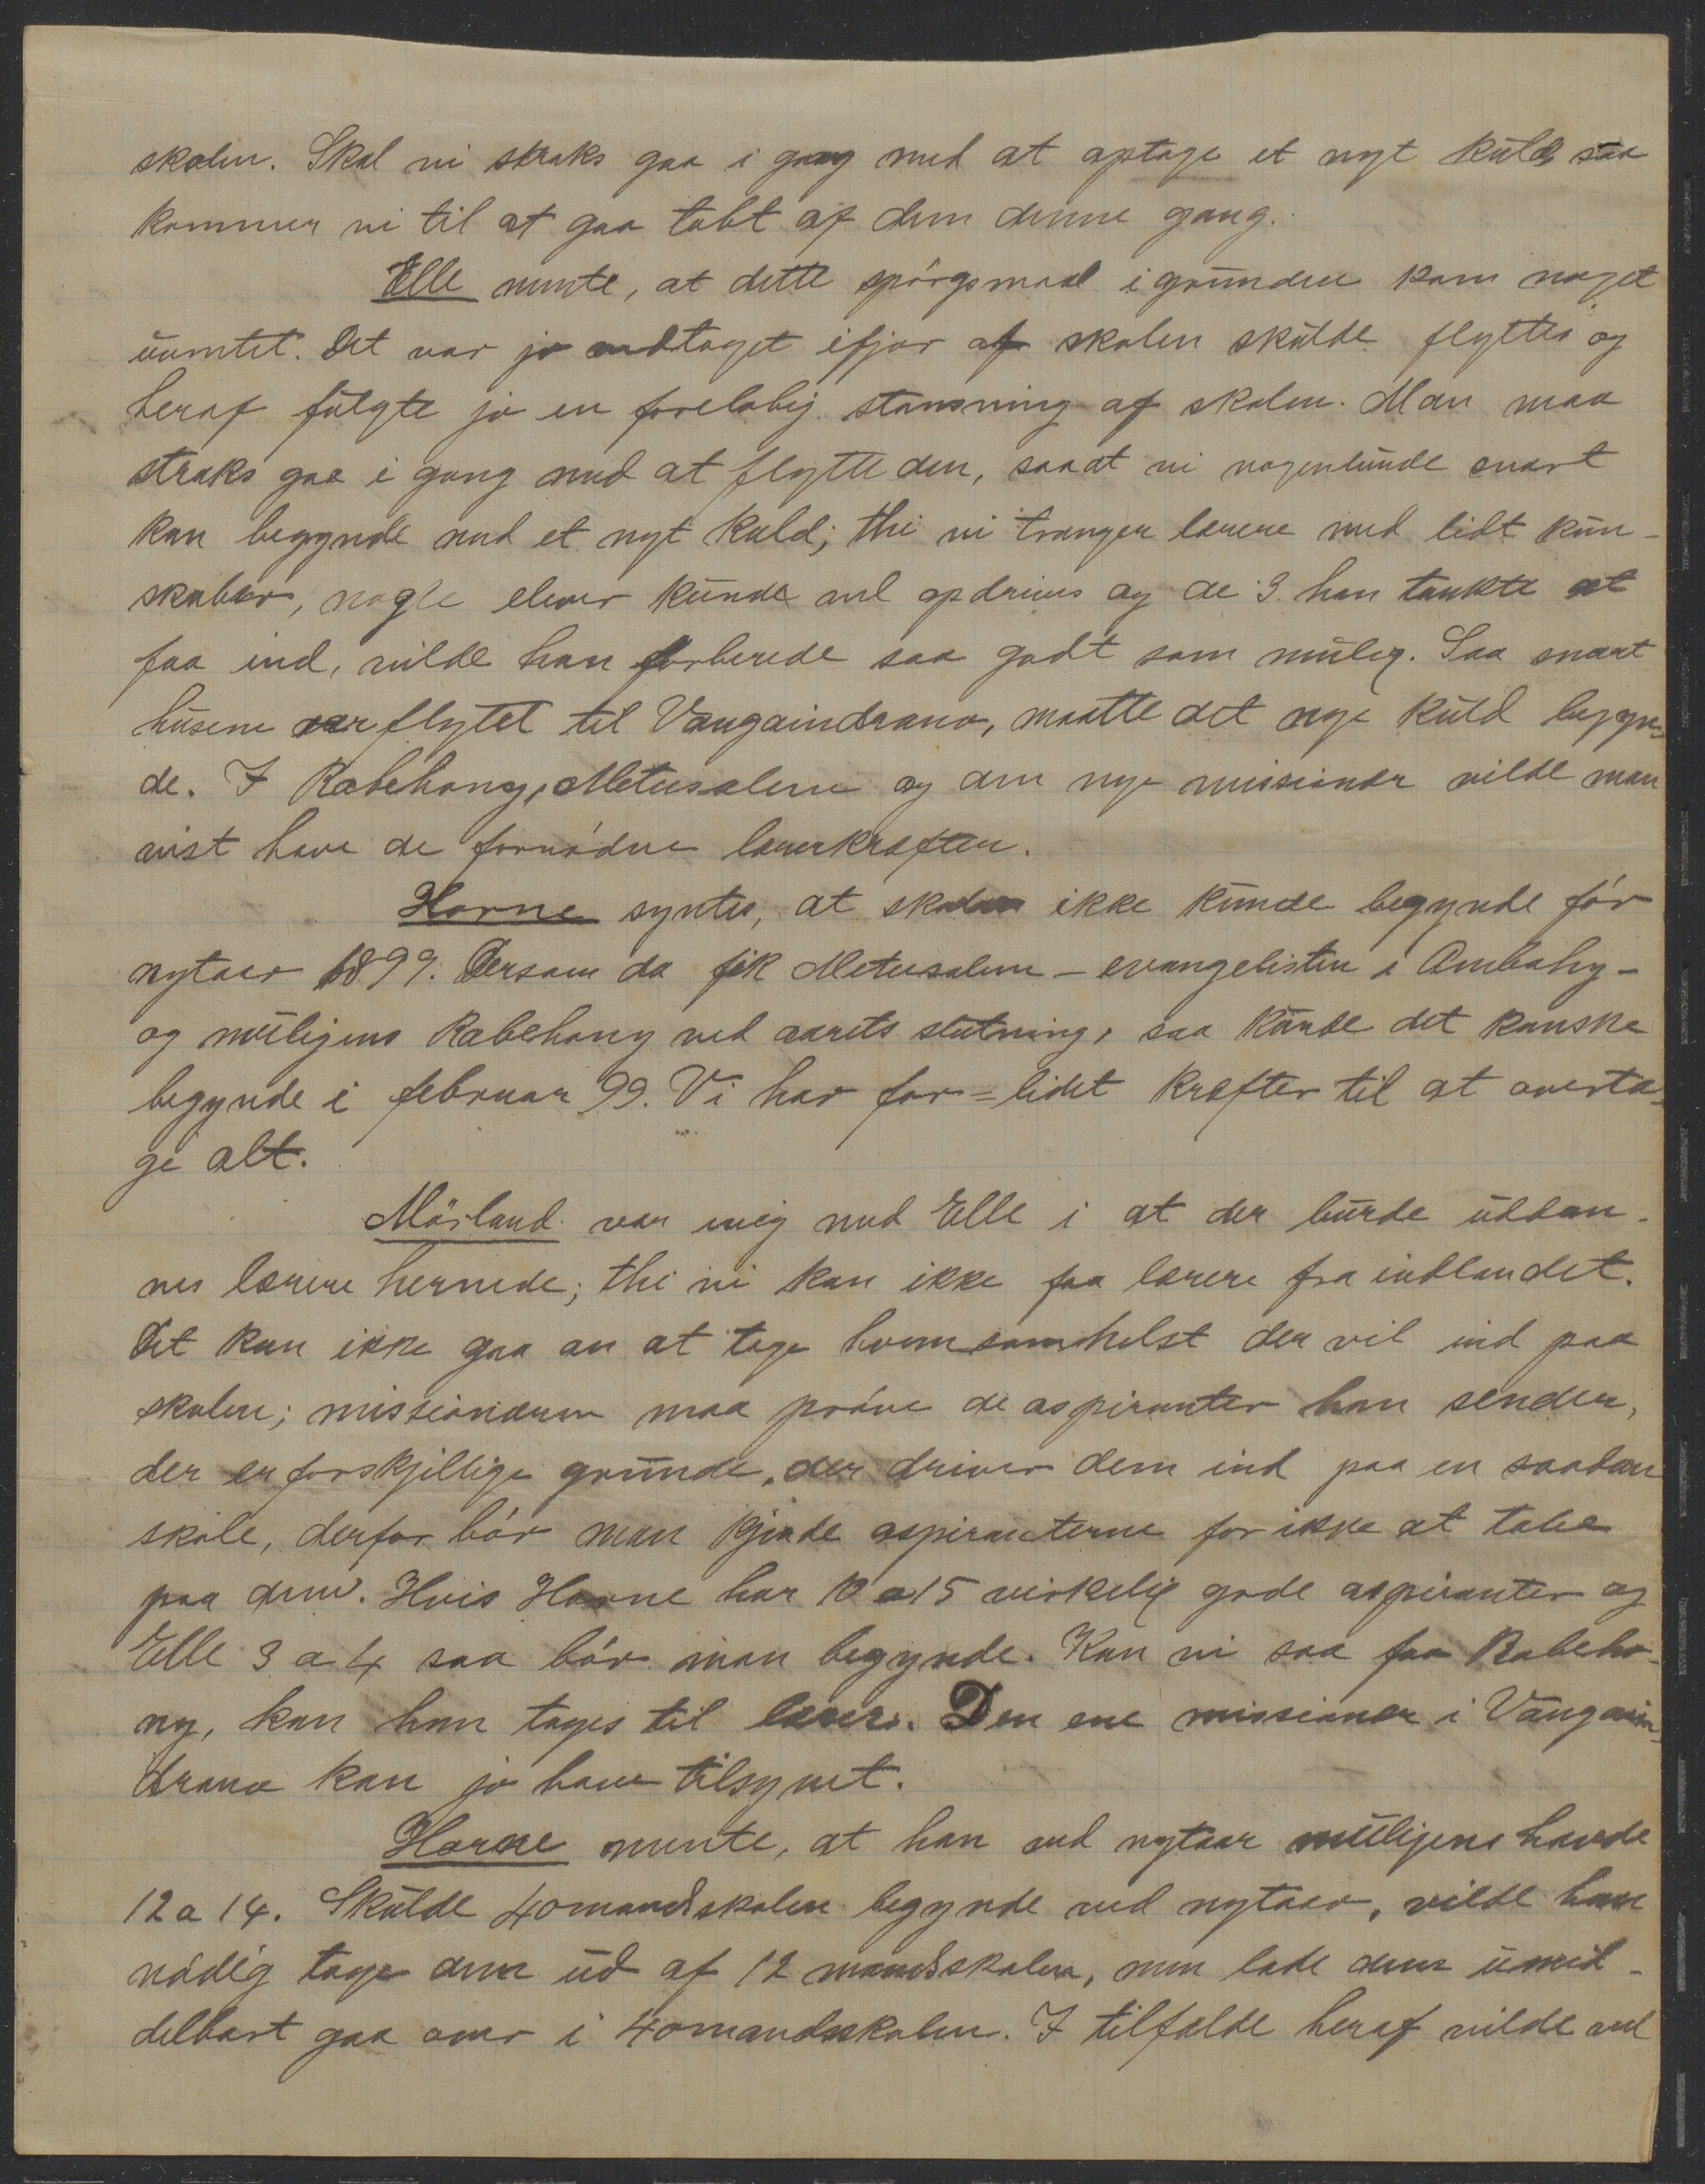 skolen. Skal vi straks gaa i gang med at optage et nyt kuld, saa
kommer vi til at gaa tabt af dem denne gang.
Elle mente, at dette spórgsmaal i grunden kom noget
uventet. Det var jo vedtaget ifjor at skolen skulde flyttes og
heraf fulgte jo en forelóbig stansning af skolen. Man maa
straks gaa i gang med at flytte den, saaat vi nogenlunde snart
kan begynde med et nyt kuld; thi vi trænger lærere med lidt kun-
skaber, nogle elever kunde vel opdrives og de 3 han tænkte at
faa ind, vilde han forberede saa godt som mulig. Saa snart
husene var flyttet til Vangaindrano, maatte det nye kuld begyn-
de. I Rabehany, Metusalem og den nye missionær vilde man
vist have de fornódne lærerkræfter.
Horne syntes, at skolen ikke kunde begynde fór
nytaar 1899. Dersom da fik Metusalem – evangelisten i Ambahy –
og muligens Rabehany ved aarets slutning, saa kunde det kanske
begynde i februar 99. Vi har for=lidet kræfter til at overta-
ge alt.
Mórland var enig med Elle i at der burde uddan-
nes lærere hernede; thi vi kan ikke faa lærere fra indlandet.
Det kan ikke gaa an at tage hvemsomhelst der vil ind paa
skolen; missionæren maa próve de aspiranter han sender,
der er forskjellige grunde, der driver dem ind paa en saadan
skole, derfor bór man kjende aspiranterne for ikke at tabe
paa dem. Hvis Horne har 10 a 15 virkelig gode aspiranter og
Elle 3 a 4 saa bór man begynde. Kan vi saa faa Rabeha-
ny, kan han tages til lærer. Den ene missionær i Vangain-
drano kan jo have tilsynet.
Horne mente, at han ved nytaar muligens havde
12 a 14. Skulde 40mandsskolen begynde ved nytaar, vilde han
nódig tage dem ud af 12 mandsskolen, men lade dem umid-
delbart gaa over i 40mandsskolen. I tilfælde heraf vilde vel